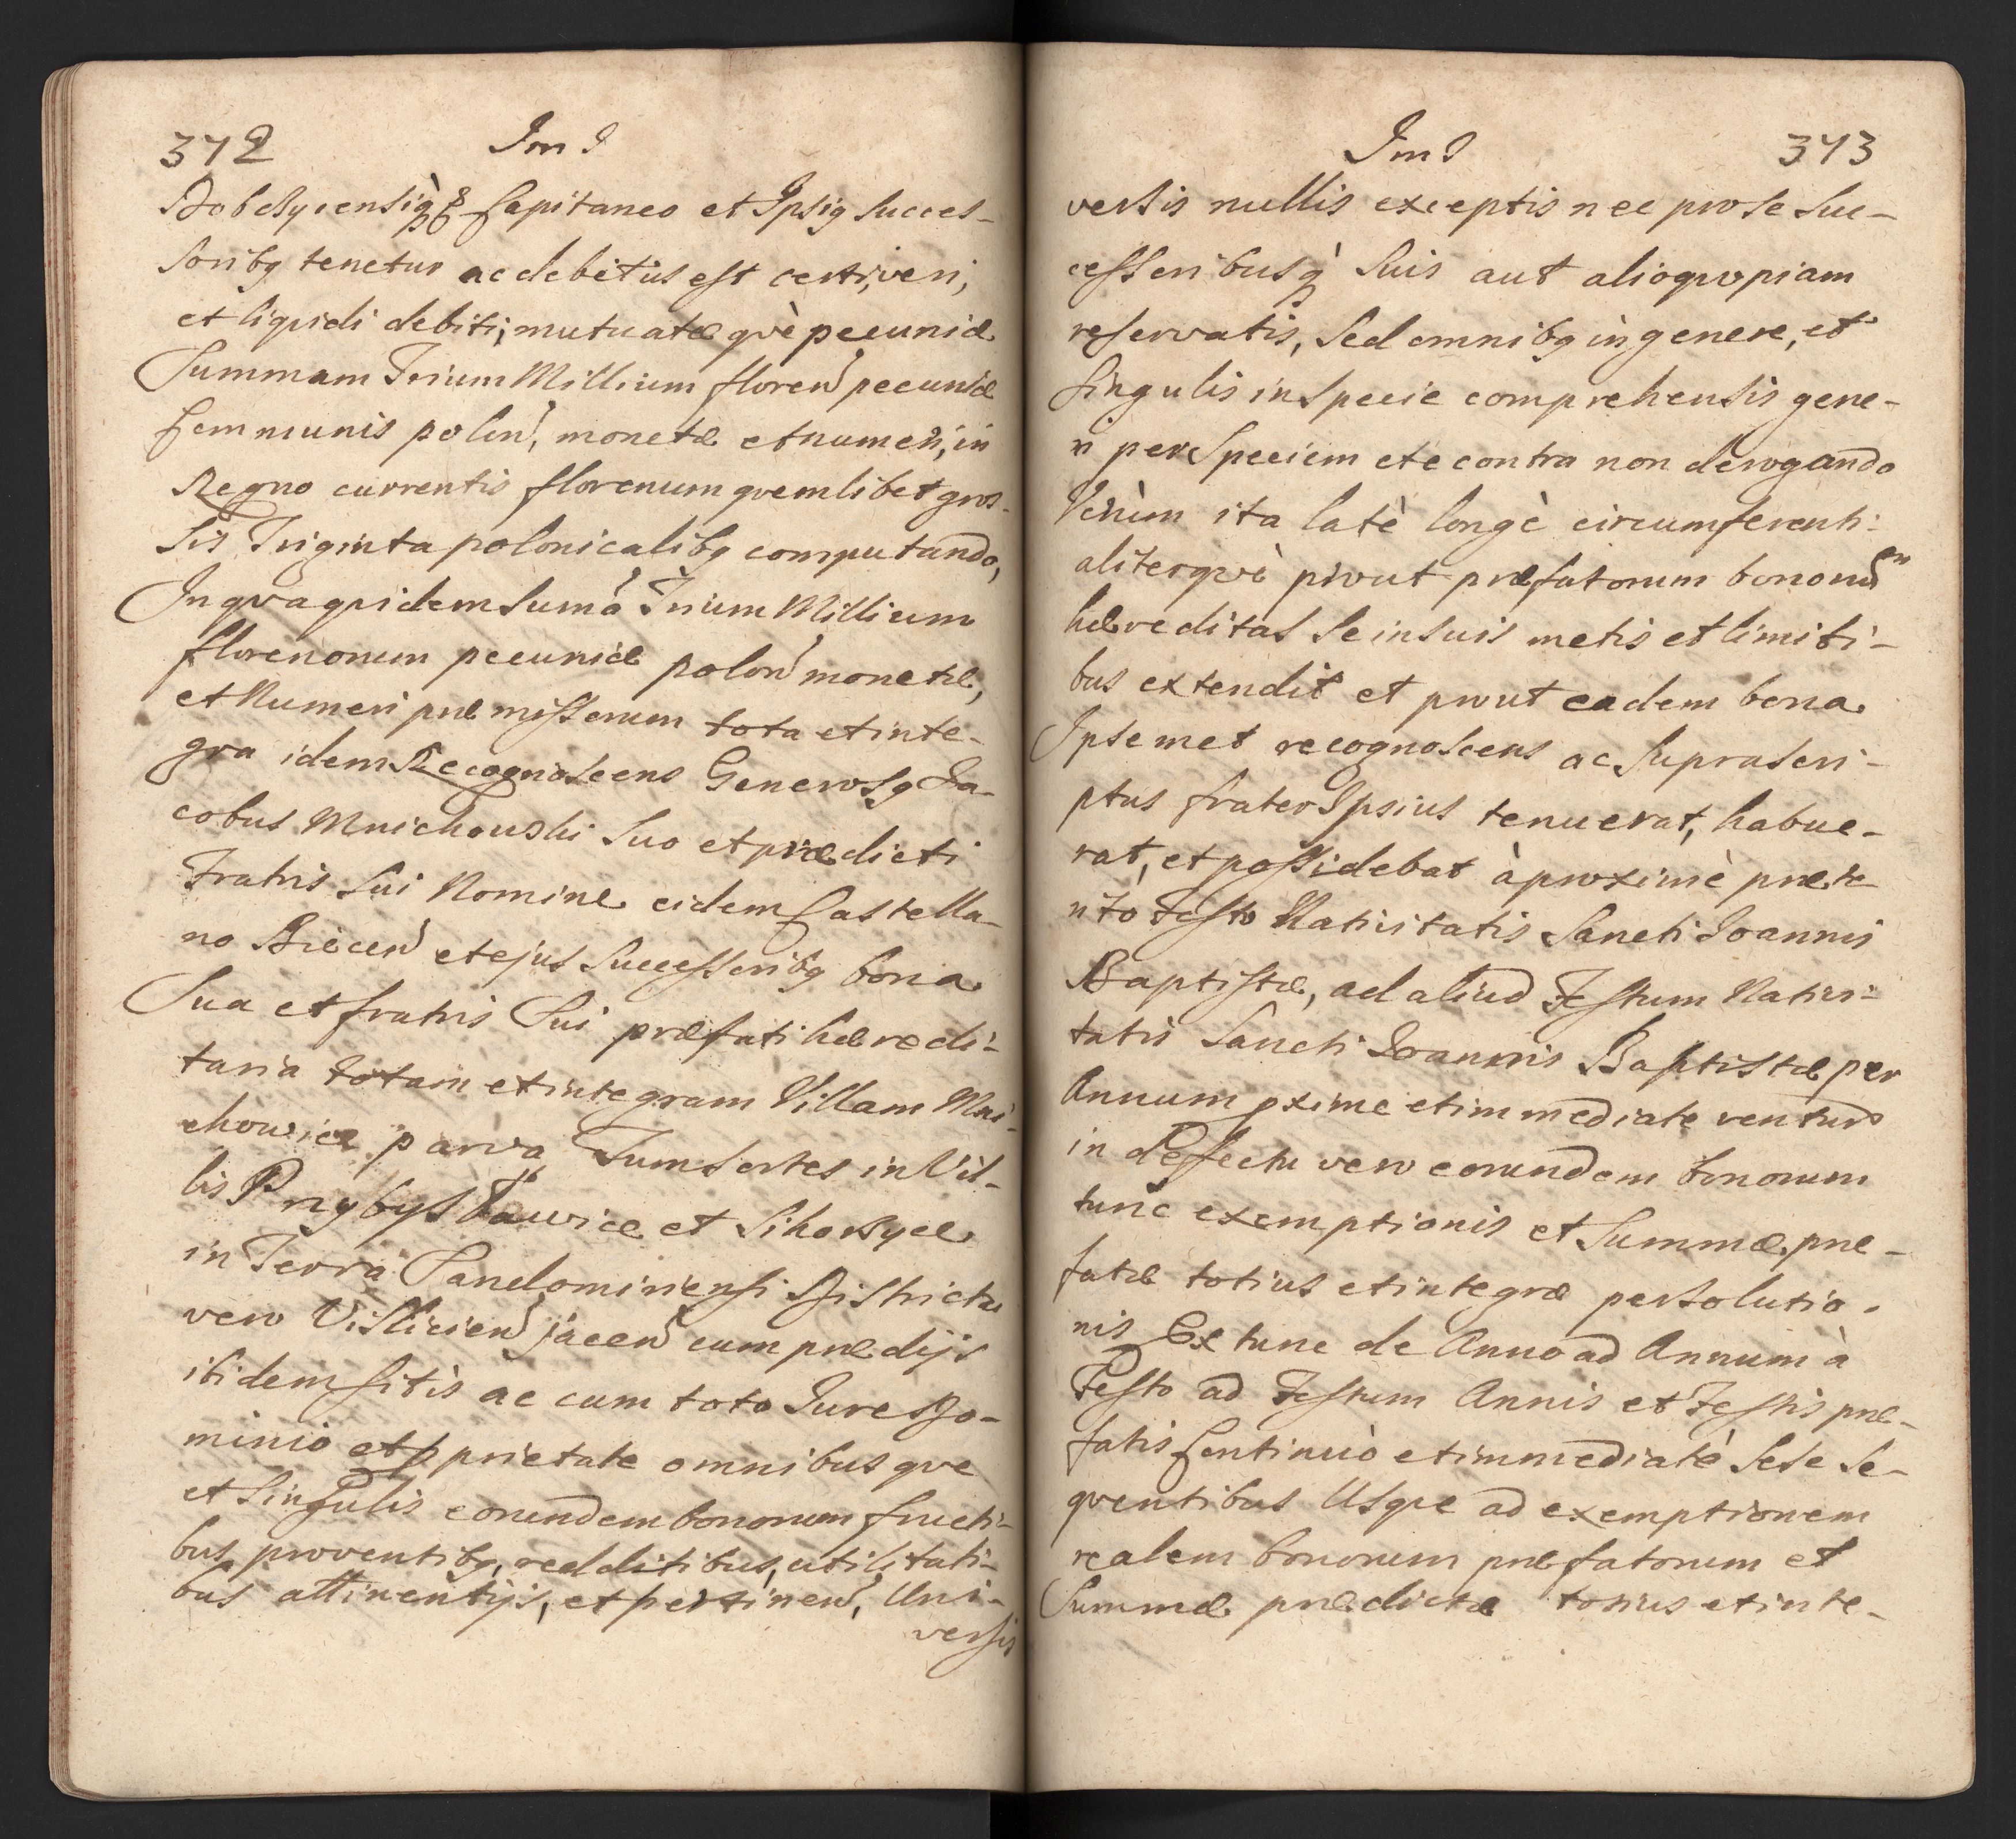 372
Im J
Dobczycensiq Capitaneo et Ipsiq succes-
soribq tenetur ac debitus est certi, veri,
et liqvidi debiti, mutuatæ qvè pecuniæ
Summam Trium Millium floren pecuniæ
Communis polon, monetæ et numeri, in
Regno currentis florenum qvemlibet gros-
sis Triginta polonicalibq computando,
In qva qvidem suma Trium Millium
florenorum pecuniæ polon monetæ,
et Numeri præmissorum tota et inte-
gra idem Recognoscens Generosq Ja-
cobus Mnichowski suo et prædicti
Fratris sui Nomine eidem Castella-
no Biecen et ejus Successoribq bona
Sua et fratris Sui præfati hæredi-
taria totam et integram Villam Mni-
chowice parva Tum sortes in Vil-
lis Przybysławice et Sikorzyce
in Terra Sandomiriensi Districtu
vero Vislicien jacen cum prædijs
ibidem sitis ac cum toto Jure Do-
minio et pprietate omnibus qve
et singulis eorundem bonorum fructi-
bus, proventibq, redditibus, utilitati-
bus attinentijs, et pertinen, Uni-
versis
Im J
373
versis nullis exceptis nec pro se suc-
cessoribusq suis aut alioqvopiam
reservatis, sed omnibq in genere, et
singulis in specie comprehensis gene-
ri per Speciem et e contra non derogando
Verùm ita latè longè circumferenti-
aliterqvè prout præfatorum bonorum
hæreditas se in suis metis et limiti-
bus extendit et prout eadem bona
Ipsemet recognoscens ac supra scri-
ptus frater Ipsius tenuerat, habue-
rat, et possidebat à proximè præte
rito Festo Nativitatis Sancti Joannis
Baptistæ, ad aliud Festum Nativi-
tatis Sancti Joannis Baptistæ per
Annum pxime et immediate ventur
in deffectu vero eorundem bonorum
tunc exemptionis et Summæ præ-
fatæ totius et integræ persolutio-
nis Ex tunc de Anno ad Annum à
Festo ad Festum Annis et Festis præ-
fatis Continuò et immediatè sese se-
qventibus Usqve ad exemptionem
realem bonorum præfatorum et
Summæ prædictæ totius et inte-